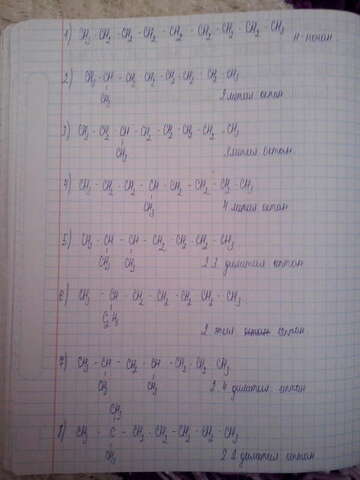 1) CH3 - CH2 - CH2 - CH2 - CH2 - CH2 - CH2 - CH2 - CH3 н-нонан
2) CH3 - CH - CH2 - CH2 - CH2 - CH2 - CH2 - CH3
CH3
2 метил октан
3) CH3 - CH2 - CH - CH2 - CH2 - CH2 - CH2 - CH3
CH3
3 метил октан
4) CH3 - CH2 - CH2 - CH - CH2 - CH2 - CH2 - CH3
CH3
4 метил октан
5) CH3 - CH - CH - CH2 - CH2 - CH2 - CH3
CH3 CH3
2.3 диметил гептан
6) CH3 - CH - CH2 - CH2 - CH2 - CH2 - CH3
2 гептан
7) CH3 - CH - CH2 - CH - CH2 - CH2 - CH3
CH3 CH3
2.4 диметил гептан
CH3
8) CH3 - C - CH2 - CH2 - CH2 - CH2 - CH3
CH3
2.2 диметил гептан